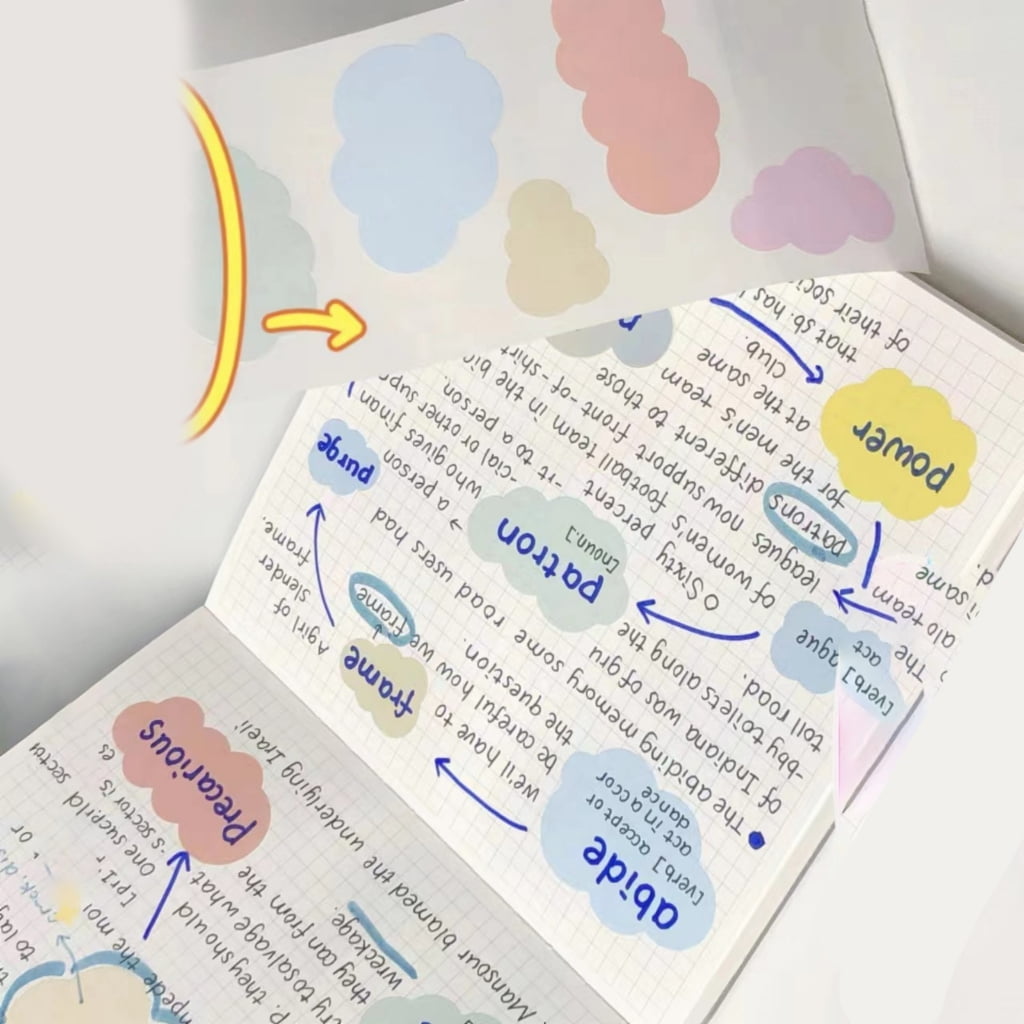 abide
[verb] accept or
act in accor
dance
The abiding memory some road users had
of Indiana was of gru
-bby toilets along the
toll road.
we'll have to
be careful how we frame
the question.
frame
A girl of
slender
frame.
purge
patron
[noun.]
a person who gives finan
-cial or other supp
-rt to a person.
Sixty percent
of women's football team in the
leagues now support front-of-shirt
patrons different to those
for the men's team
at the same
Club.
ague
[verb]
act
The
alo team
same
power
that sb. has
of their soci
Mansour blamed the underlying Israeli
wreckage.
they can from the
ry to salvage what
P. they should
mpede the
Precarious
One
-s sector is
sector
or
to